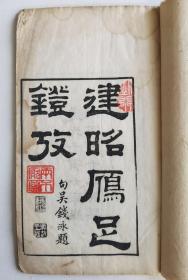 建昭鴈足
鐙攷
句吳錢泳題